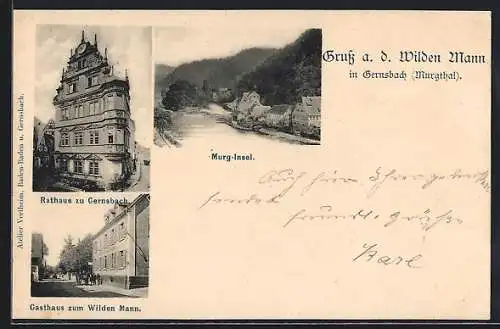 Gruß a. d. Wilden Mann
in Gernsbach (Murgthal).
Murg-Insel.
Rathaus zu Gernsbach.
Gasthaus zum Wilden Mann.
Atelier Viertheim, Baden-Baden u. Gernsbach.
Auch hier
freundl. Grüße
Karl